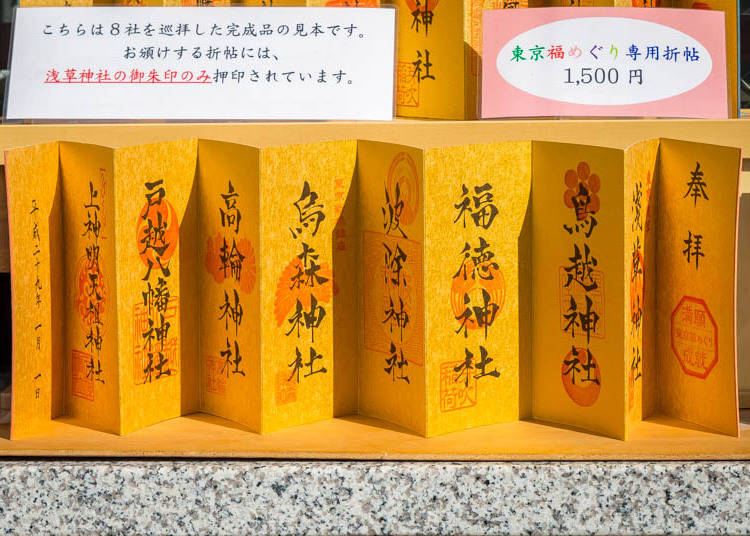 こちらは8社を巡拝した完成品の見本です。
お頒けする折帖には、
浅草神社の御朱印のみ押印されています。
神社
東京福めぐり専用折帖
1,500 円
奉拝
満願
東京福めぐり
成就
浅草神社
鳥越神社
福徳神社
稲荷
波除神社
烏森神社
高輪神社
戸越八幡神社
上神明天祖神社
平成二十九年 一月 一日